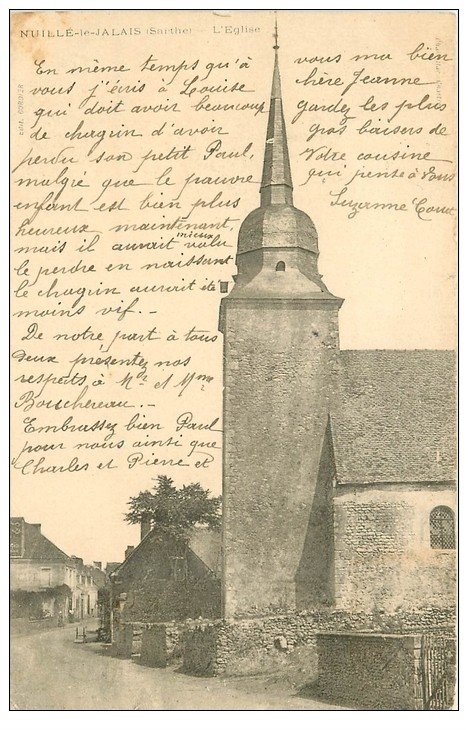 NUILLÉ-le-JALAIS (Sarthe) - L'Eglise
En même temps qu'à
vous j'éris à Louise
qui doit avoir beaucoup
de chagrin d'avoir
perdu son petit Paul,
malgré que le pauvre
enfant est bien plus
heureux maintenant,
mais il aurait mieux valu
le perdre en naissant
le chagrin aurait été
moins vif. -
De notre part à tous
deux présentez nos
respects à Mr et Mme
Bouchereau. -
Embrassez bien Paul
pour nous ainsi que
Charles et Pierre et
vous ma bien
chère Jeanne
Gardez les plus
gros baisers de
Votre cousine
qui pense à Vous
Suzanne
Edit. CORDIER